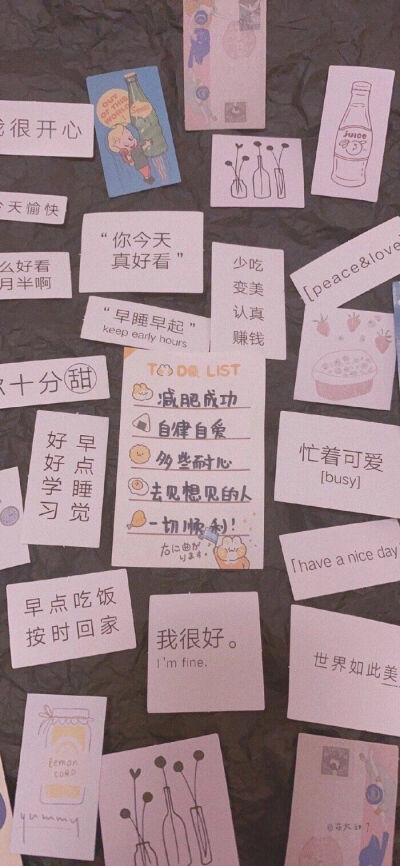 我很开心
OUT
OF THIS
WORLD
JUICE
今天愉快
“你今天
真好看”
么好看
月半啊
少吃
变美
认真
赚钱
[peace&love]
“早睡早起”
keep early hours
十分甜
TO DO LIST
减肥成功
自律自爱
多些耐心
去见想见的人
一切顺利!
早点睡觉
好好学习
忙着可爱
[busy]
「have a nice day
早点吃饭
按时回家
我很好。
I'm fine.
世界如此美
lemon
yummy